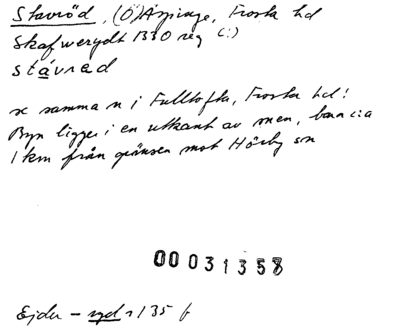 Stavröd, (Ö) Äspinge, Frosta hd
Skafwerydt 1330 reg (:)
stávrad
se samma n i Fulltofta, Frosta hd!
Byn ligger i en utkant av men, bara c:a
1 km från gränsen mot Hörby sn
00031358
Ejder - ryd s 135 f